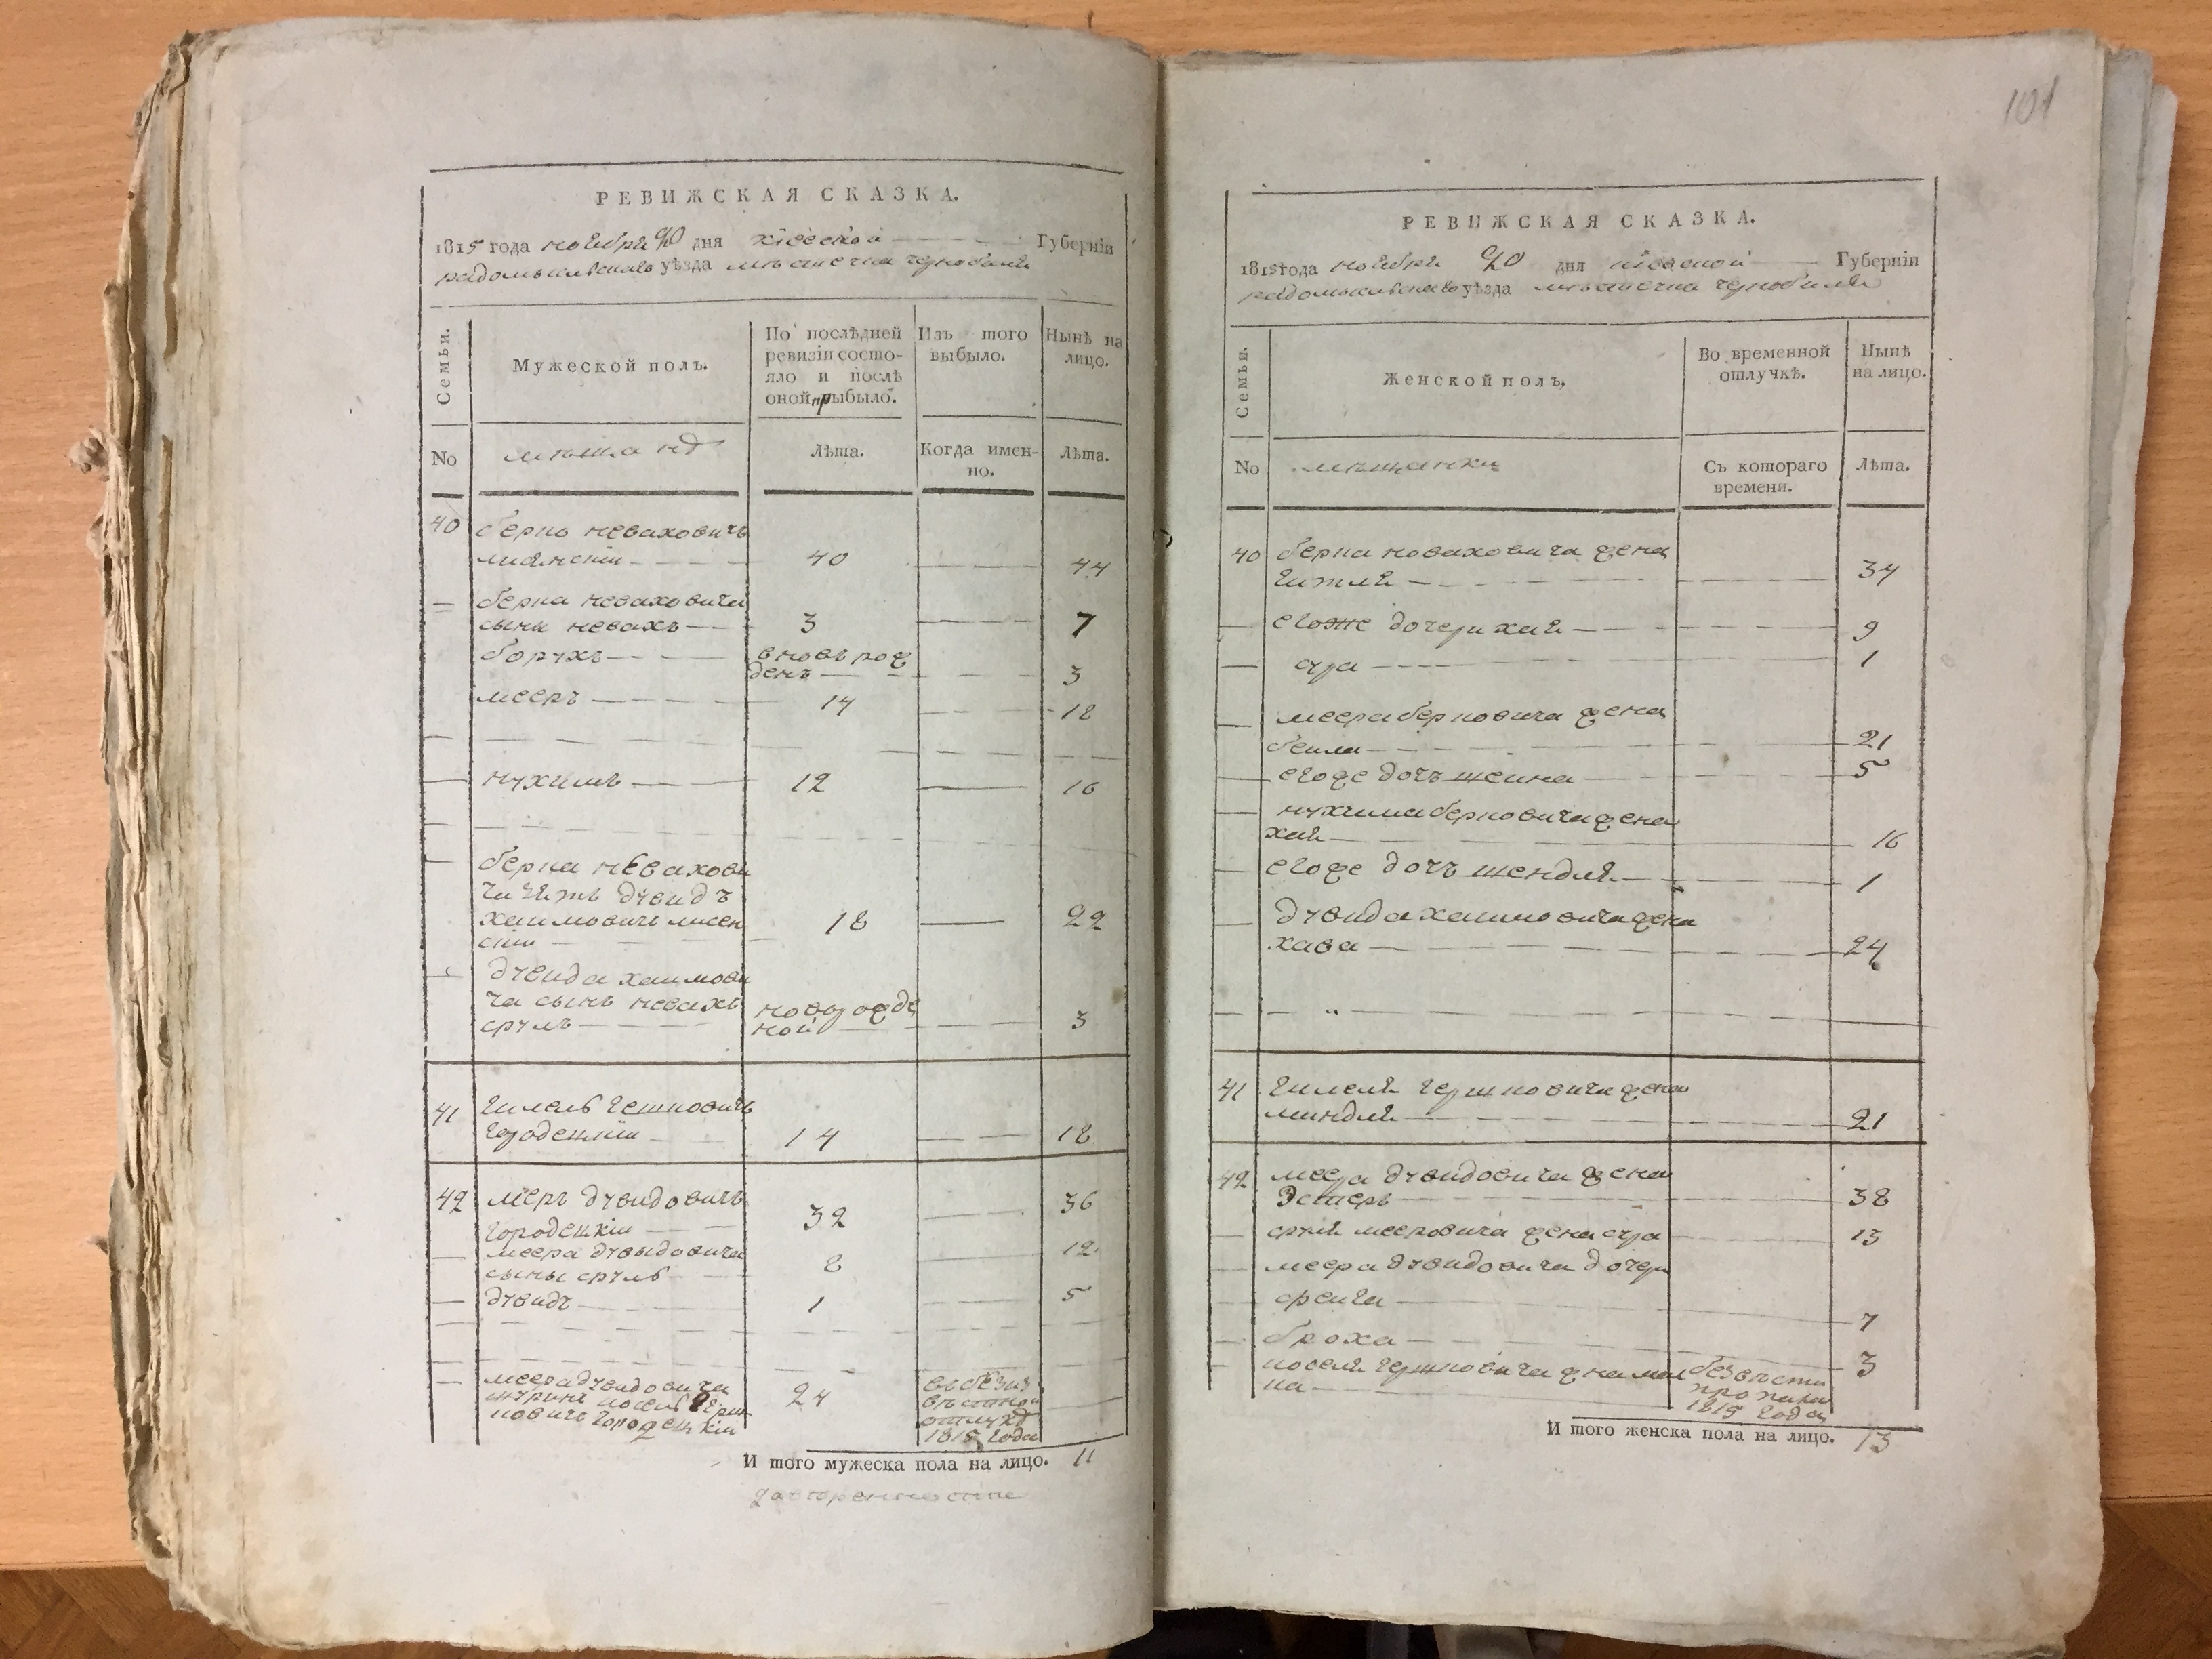 РЕВИЖСКАЯ СКАЗКА.
1815 года ноября 20 дня кіевской Губерніи
радомысльскаго уѣзда мѣстечка чернобиля
Семьи.
Мужеской полъ.
По послѣдней ревизіи состо-
яло и послѣ
оной прыбыло.
Изъ того
выбыло.
Нынѣ на
лицо.
No
Лѣта.
Когда имен-
но.
Лѣта.
40 берко неваховичъ
40 44
берка неваховича
сыны невахъ 3 7
борухъ вновь рож
денъ 3
мееръ 14 18
нухимъ 12 16
берка неваховы
ча зять дувидъ
хаимовичъ 18 22
дувида хаимови
ча сынъ невахъ новорожде
сруль ной 3
41
14 18
42 меръ дувидовичъ 36
городецкіи 32
меера дувыдовича 12
сыны сруль 8
дувидъ 1 5
меера дувидовича
шуринъ 24
новичъ городецкіи
отлуки
1815 года
И того мужеска пола на лицо. 11
101
РЕВИЖСКАЯ СКАЗКА.
1815 года ноября 20 дня кіевской Губерніи
радомысльскаго уѣзда мѣстечка чернобиля
Семьи.
Женской полъ.
Во временной
отлучкѣ.
Нынѣ
на лицо.
No мѣщанки
Съ котораго
времени.
Лѣта.
40 берка неваховича жена
34
егоже дочери хая 9
сура 1
меера берковича жена
беила 21
егоже дочь шеина 5
нухима берковича жена
хая 16
егоже дочь шендля 1
дувида хаимовича жена
хава 24
41 гершковича жена
миндля 21
42 меера дувидовича жена
Эстеръ 38
сруля мееровича жена сура 13
меера дувидовича дочери
феига 7
броха 3
гершковича безвѣсти
пропала
1815 года
И того женска пола на лицо. 13